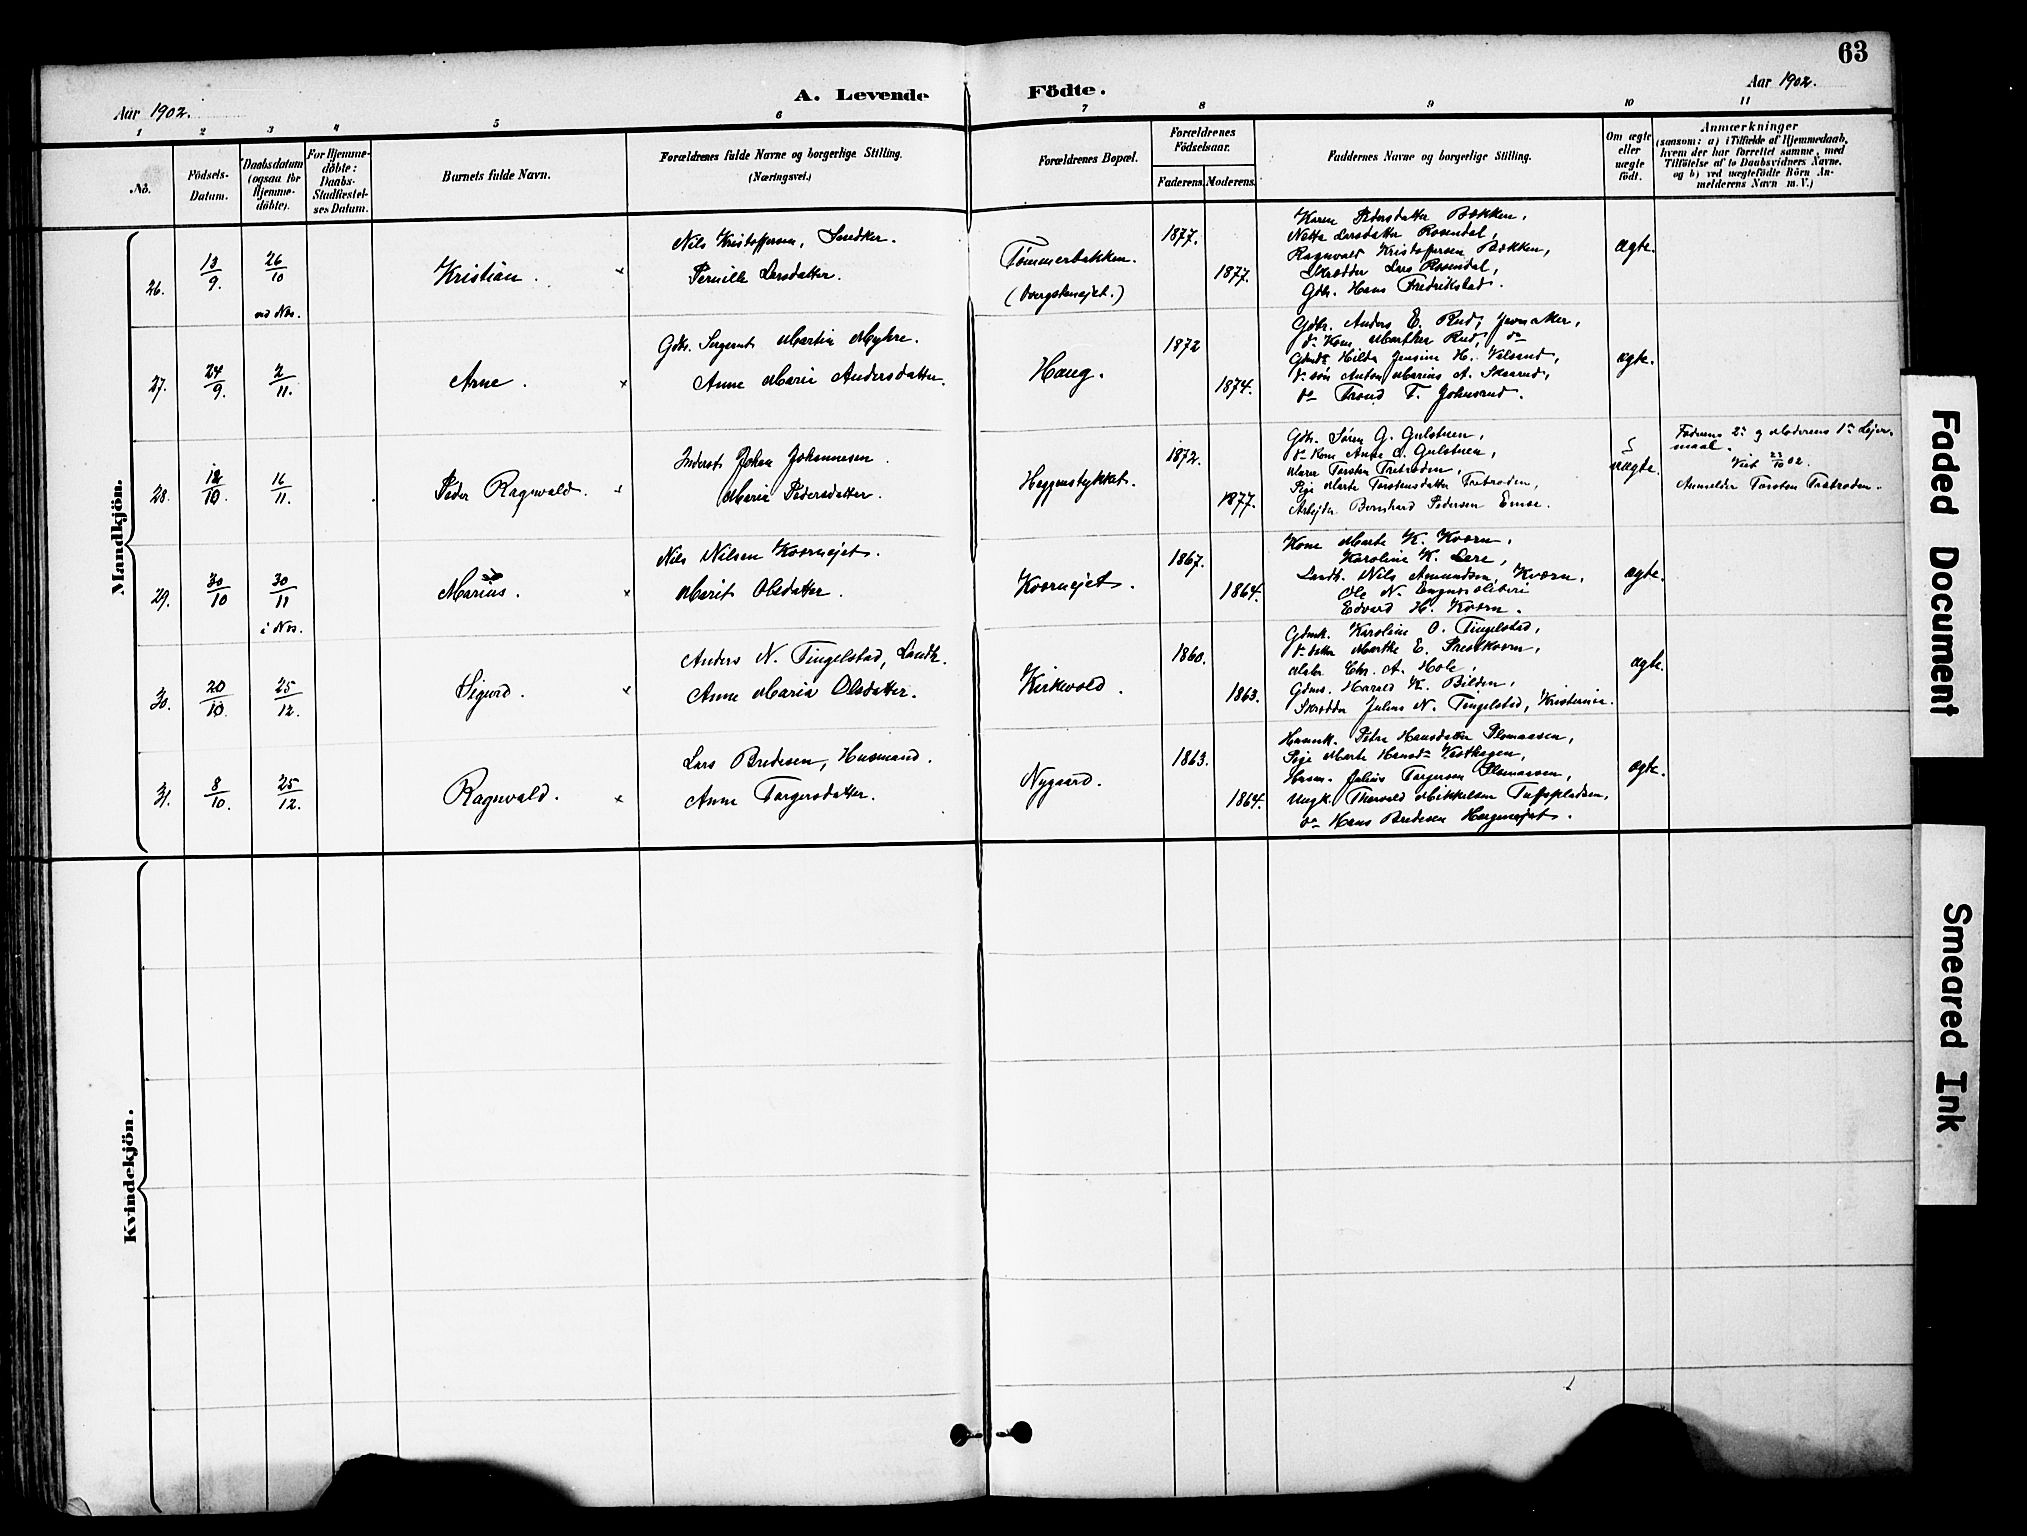 63
Aar 1902.
A. Levende Födte.
Aar 1902.
1 2 3 4 5 6 7 8 9 10 11
No.
Födsels-Datum.
Daabsdatum (ogsaa for Hjemme-döbte).
For Hjemme-döbte: Daabs-Stadfestel-ses Datum.
Barnets fulde Navn.
Forældrenes fulde Navne og borgerlige Stilling. (Næringsvei.)
Forældrenes Bopæl.
Forældrenes Födselsaar.
Faderens. Moderens.
Faddernes Navne og borgerlige Stilling.
Om ægte eller uægte födt.
Anmærkninger
(saasom: a) i Tilfælde af Hjemmedaab, hvem der har forrettet samme, med Tilföielse af to Daabsvidners Navne, og b) ved uægtefödte Börn An-melderens Navn m. V.)
Mandkjön.
26.
13/9.
26/10
Kristian.
Nils Kristoffersen, Snedker.
Pernille Larsdatter.
Tømmerbakken.
1877.
1877.
Karen Pedersdatter Bækken,
Nette Larsdatter Rosendal,
Ragnvald Kristoffersen Bækken,
Skrædder Lars Rosendal,
Gdbr. Hans Fredrikstad.
ægte.
27.
24/9.
2/11.
Arne.
Gdbr. Sergeant Martin Myhre.
Anne Marie Andersdatter.
Haug.
1872
1874.
Gdbr. Anders E. Rud, Jevnaker,
do Kone Marthe Rud, do
Hilda Jensine H.
do søn Anton Marius A. Skaarud,
do Trond T. Johnsrud.
ægte.
28.
12/10.
16/11.
Peder Ragnvald.
Inderst Johan Johannesen.
Maria Pedersdatter.
Heggenstykket.
1872.
1877.
Gdbr. Søren G. Gulstuen,
do Kone Anne A. Gulstuen,
Torsten Tretroden,
Pige Marte Torstensdatter Tretroden,
Arbejder Bernhard Pedersen
uægte.
Faderens 2det og Moderens 1ste Lejer-
maal.
Viet 23/10 02.
Anmelder Torsten Tretroden.
29.
30/10
30/11
i Nos.
Marius.
Nils Nilsen Kværnejet.
Marit Olsdatter.
Kværnejet.
1867.
1864.
Kone Marte K. Kværn,
Karoline K. Lere,
Landh. Nils Amundsen Kværn,
Ole N.
Edvard H. Kværn.
ægte.
30.
20/10.
25/12.
Sigurd.
Anders N. Tingelstad, Landh.
Anne Maria Olsdatter.
Kirkevold.
1860.
1863.
Karoline O. Tingelstad,
do datter Marthe E. Prestkværn,
Chr. A. Hole,
Harald K. Bilden,
Skrædder Julius N. Tingelstad, Kristiania.
ægte.
31.
8/10.
25/12.
Ragnvald.
Lars Bredesen, Husmand.
Anne Torgersdatter.
Nygaard.
1863.
1864.
Petra Hansdatter Plomaasen,
Pige Marte Hansdr Vesthagen,
Husm. Julius Torgersen Plomaasen,
Ungk. Thorvald Mikkelsen Tuftspladsen,
do Hans Bredesen
ægte.
Kvindekjön.
Faded Document
Smeared Ink